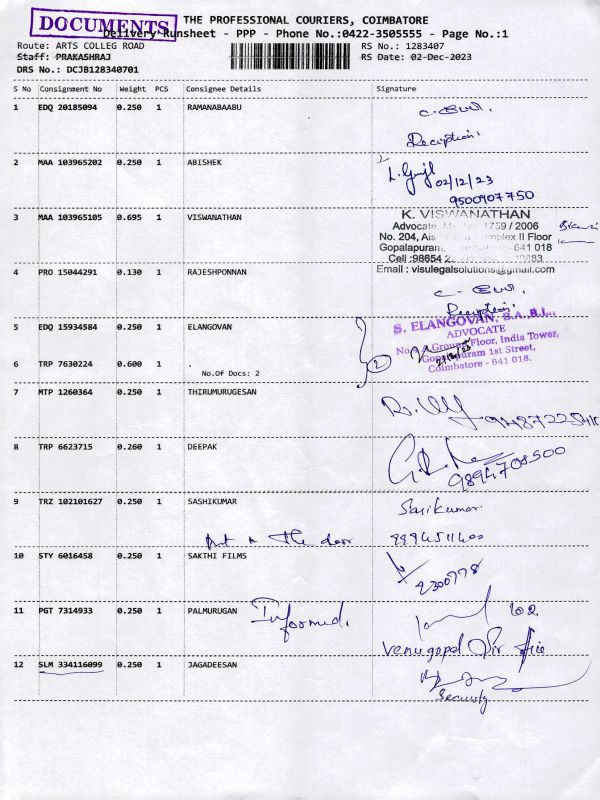 DOCUMENTS
THE PROFESSIONAL COURIERS, COIMBATORE
Delivery Runsheet - PPP - Phone No.:0422-3505555 - Page No.:1
Route: ARTS COLLEG ROAD
RS No.: 1283407
Staff: PRAKASHRAJ
RS Date: 02-Dec-2023
DRS No.: DCJB128340701
S No Consignment No Weight PCS Consignee Details Signature
1 EDQ 20185094 0.250 1 RAMANABAABU
Reception.
2 MAA 103965202 0.250 1 ABISHEK
02/12/23
9500907750
3 MAA 103965105 0.695 1 VISWANATHAN
K. VISWANATHAN
Advocate 1759 / 2006
No. 204, II Floor
Gopalapuram, 641 018
Cell :98654
Email : visulegalsolutions@gmail.com
4 PRO 15044291 0.130 1 RAJESHPONNAN
Reception.
5 EDQ 15934584 0.250 1 ELANGOVAN
S. ELANGOVAN, B.A.,B.L.,
ADVOCATE
Floor, India Tower,
Gopalapuram 1st Street,
Coimbatore - 641 018.
6 TRP 7630224 0.600 1 .
No.Of Docs: 2
2
7 MTP 1260364 0.250 1 THIRUMURUGESAN
8 TRP 6623715 0.260 1 DEEPAK
9894708500
9 TRZ 102101627 0.250 1 SASHIKUMAR
Sasikumar
put in the door
9894511400
10 STY 6016458 0.250 1 SAKTHI FILMS
2300778
11 PGT 7314933 0.250 1 PALMURUGAN
Informed.
Venugopal Sir
12 SLM 334116099 0.250 1 JAGADEESAN
Security